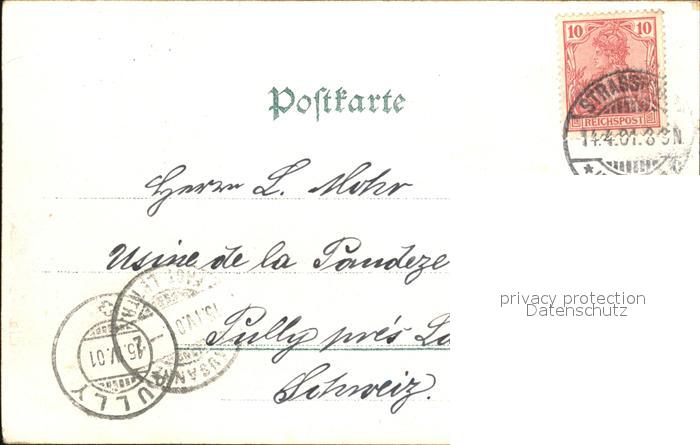 10 10
REICHSPOST
STRASSB
14.4.01.8-9N.
Postkarte
Herrn L. Mohr
Usine de la Paudeze
Pully près La
Schweiz.
LAUSANNE
15.IV.0
PULLY
15.IV.01
privacy protection
Datenschutz